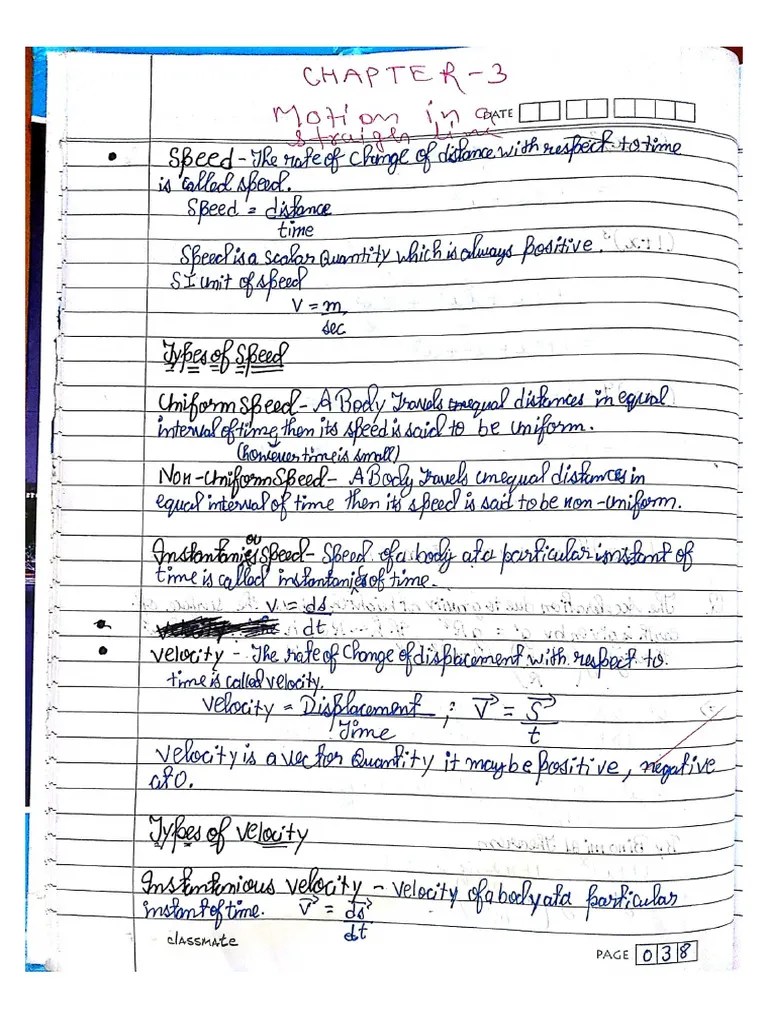 CHAPTER-3
Motion in DATE
straigh line
Speed - The rate of change of distance with respect to time
is called speed.
Speed = distance
time
Speed is a scalar Quantity which is always positive.
SI unit of speed
V = m
sec
Types of Speed
Uniform Speed - A Body Travels equal distances in equal
interval of time, then its speed is said to be uniform.
(however time is small)
Non-Uniform Speed - A Body Travels unequal distances in
equal interval of time then its speed is said to be non-uniform.
ou
Instantanies Speed - Speed of a body at a particular instant of
time is called instantanies of time.
V = ds
dt
Velocity - The rate of Change of displacement with respect to
time is called velocity.
Velocity = Displacement ; V⃗ = S⃗
Time t
Velocity is a vector Quantity it may be positive, negative
at 0.
Types of velocity
Instantanious velocity - velocity of a body at a particular
instant of time. V⃗ = ds⃗
dt
classmate
PAGE 038